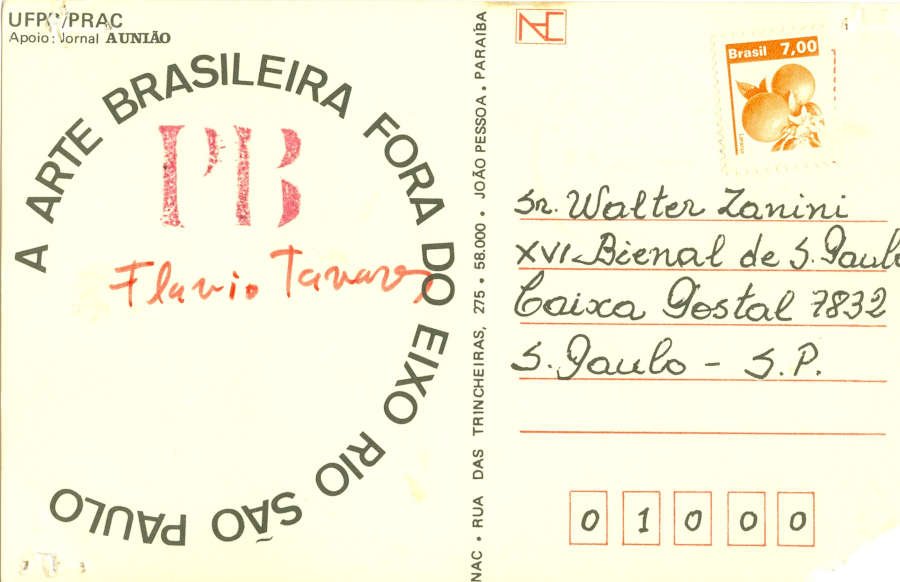 UFPB/PRAC
Apoio: Jornal A UNIÃO
A ARTE BRASILEIRA FORA DO EIXO RIO SÃO PAULO
PB
Flavio Tavares
NAC • RUA DAS TRINCHEIRAS, 275 • 58.000 • JOÃO PESSOA • PARAÍBA
NAC
Brasil 7,00
Sr. Walter Zanini
XVI Bienal de S. Paulo
Caixa Postal 7832
S. Paulo - S.P.
0 1 0 0 0